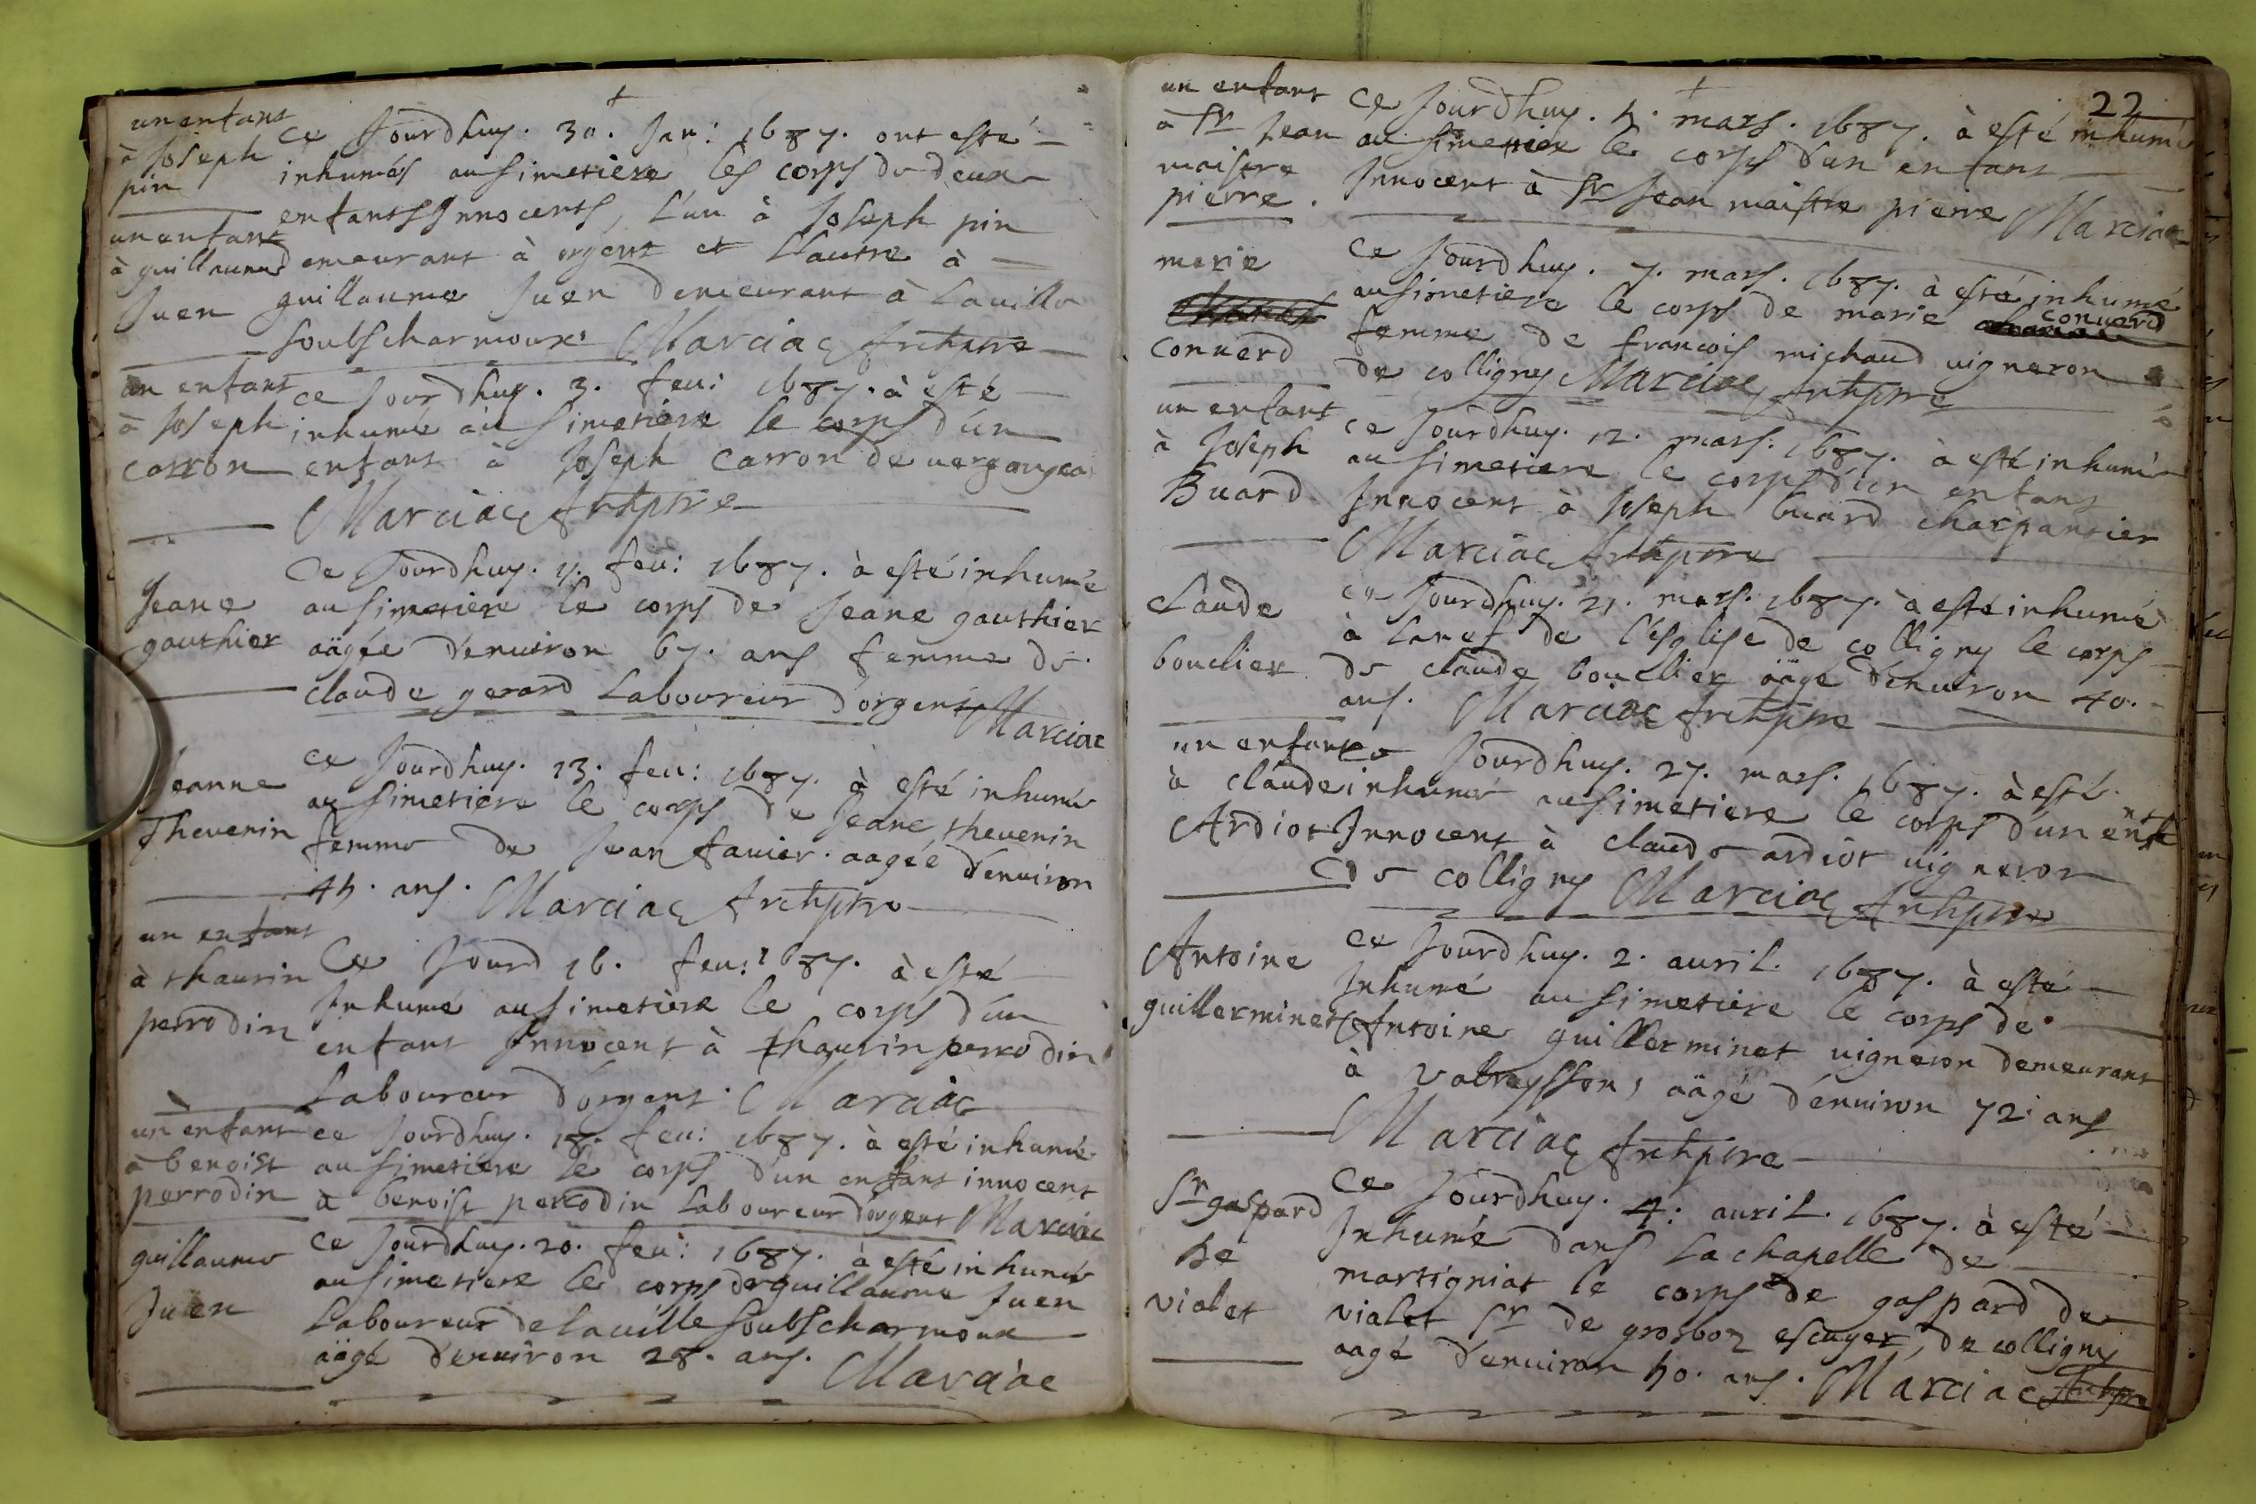 un enfant
à Joseph
pin
ce Jourdhuy. 30. Jan: 1687. ont esté
inhumés au simetiere les corps de deux
enfants Innocents, l'un à Joseph pin
demeurant à orgent et l'autre à
guillaume Juen demeurant à lauille
soubs charmoux Marciac Archptre
un enfant
à guillaume
Juen
un enfant
à Joseph
carron
ce Jourdhuy. 3. feu: 1687. à esté
inhumé au simetiere le corps d'un
enfant à Joseph carron de uergongea
Marciac Archptre
Jeane
gauthier
Ce Jourdhuy. feu: 1687. à esté inhumé
au simetiere le corps de Jeane gauthier
aägée d'enuiron 67. ans femme de
claude gerard Laboureur d'orgent Marciac
Jeanne
Thevenin
ce Jourdhuy. 13. feu: 1687. à esté inhumé
au simetiere le corps de Jeane thevenin
femme de Jean fauier. aagée d'enuiron
45. ans. Marciac Archptre
un enfant
à thaurin
perrodin
Ce Jourd 16. feu: 1687. à esté
Inhumé au simetiere le corps d'un
enfant Innocent à thaurin perrodin
Laboureur d'orgent. Marciac
un enfant
à benoist
perrodin
ce Jourdhuy. 18. feu: 1687. à esté inhumé
au simetiere le corps d'un enfant innocent
à benoist perrodin Laboureur d'orgent Marciac
guillaume
Juen
ce Jourdhuy. 20. feu: 1687. à esté inhumé
au simetiere le corps de guillaume Juen
Laboureur de lauille soubs charmoux
aägé d'enuiron 28. ans. Marciac
22
un enfant
à Sr Jean
maistre
pierre.
Ce Jourdhuy. 5. mars. 1687. à esté inhumé
au simetiere le corps d'un enfant
Innocent à Sr Jean maistre pierre Marciac
marie
conuerd
ce Jourdhuy. 7. mars. 1687. à esté inhumé
au simetiere le corps de marie conuerd
femme de francois michaud uigneron
de colligny Marciac Archptre
un enfant
à Joseph
Buard
ce Jourdhuy. 12. mars. 1687. à esté inhumé
au simetiere le corps d'un enfant
Innocent à Joseph buard charpantier
Marciac Archptre
claude
bouclier
ce Jourdhuy. 21. mars. 1687. à esté inhumé
à la nef de l'esglise de colligny le corps
de claude bouclier aägé d'enuiron 40.
ans. Marciac Archptre
un enfant
à claude
Ardiot
ce Jourdhuy. 27. mars. 1687. à esté
inhumé au simetiere le corps d'un enfant
Innocent à claude ardiot uigneron
De colligny Marciac Archptre
Antoine
guillerminet
ce Jourdhuy. 2. auril. 1687. à esté
Inhumé au simetiere le corps de
Antoine guillerminet uigneron demeurant
à valreysson, aägé d'enuiron 72 ans
Marciac Archptre
Sr gaspard
De
violet
Ce Jourdhuy. 4: auril. 1687. à esté
Inhumé dans la chapelle de
martigniat le corps de gaspard de
vialet Sr de grosboz escuyer, de colligny
aagé d'enuiron 50. ans. Marciac Archptre